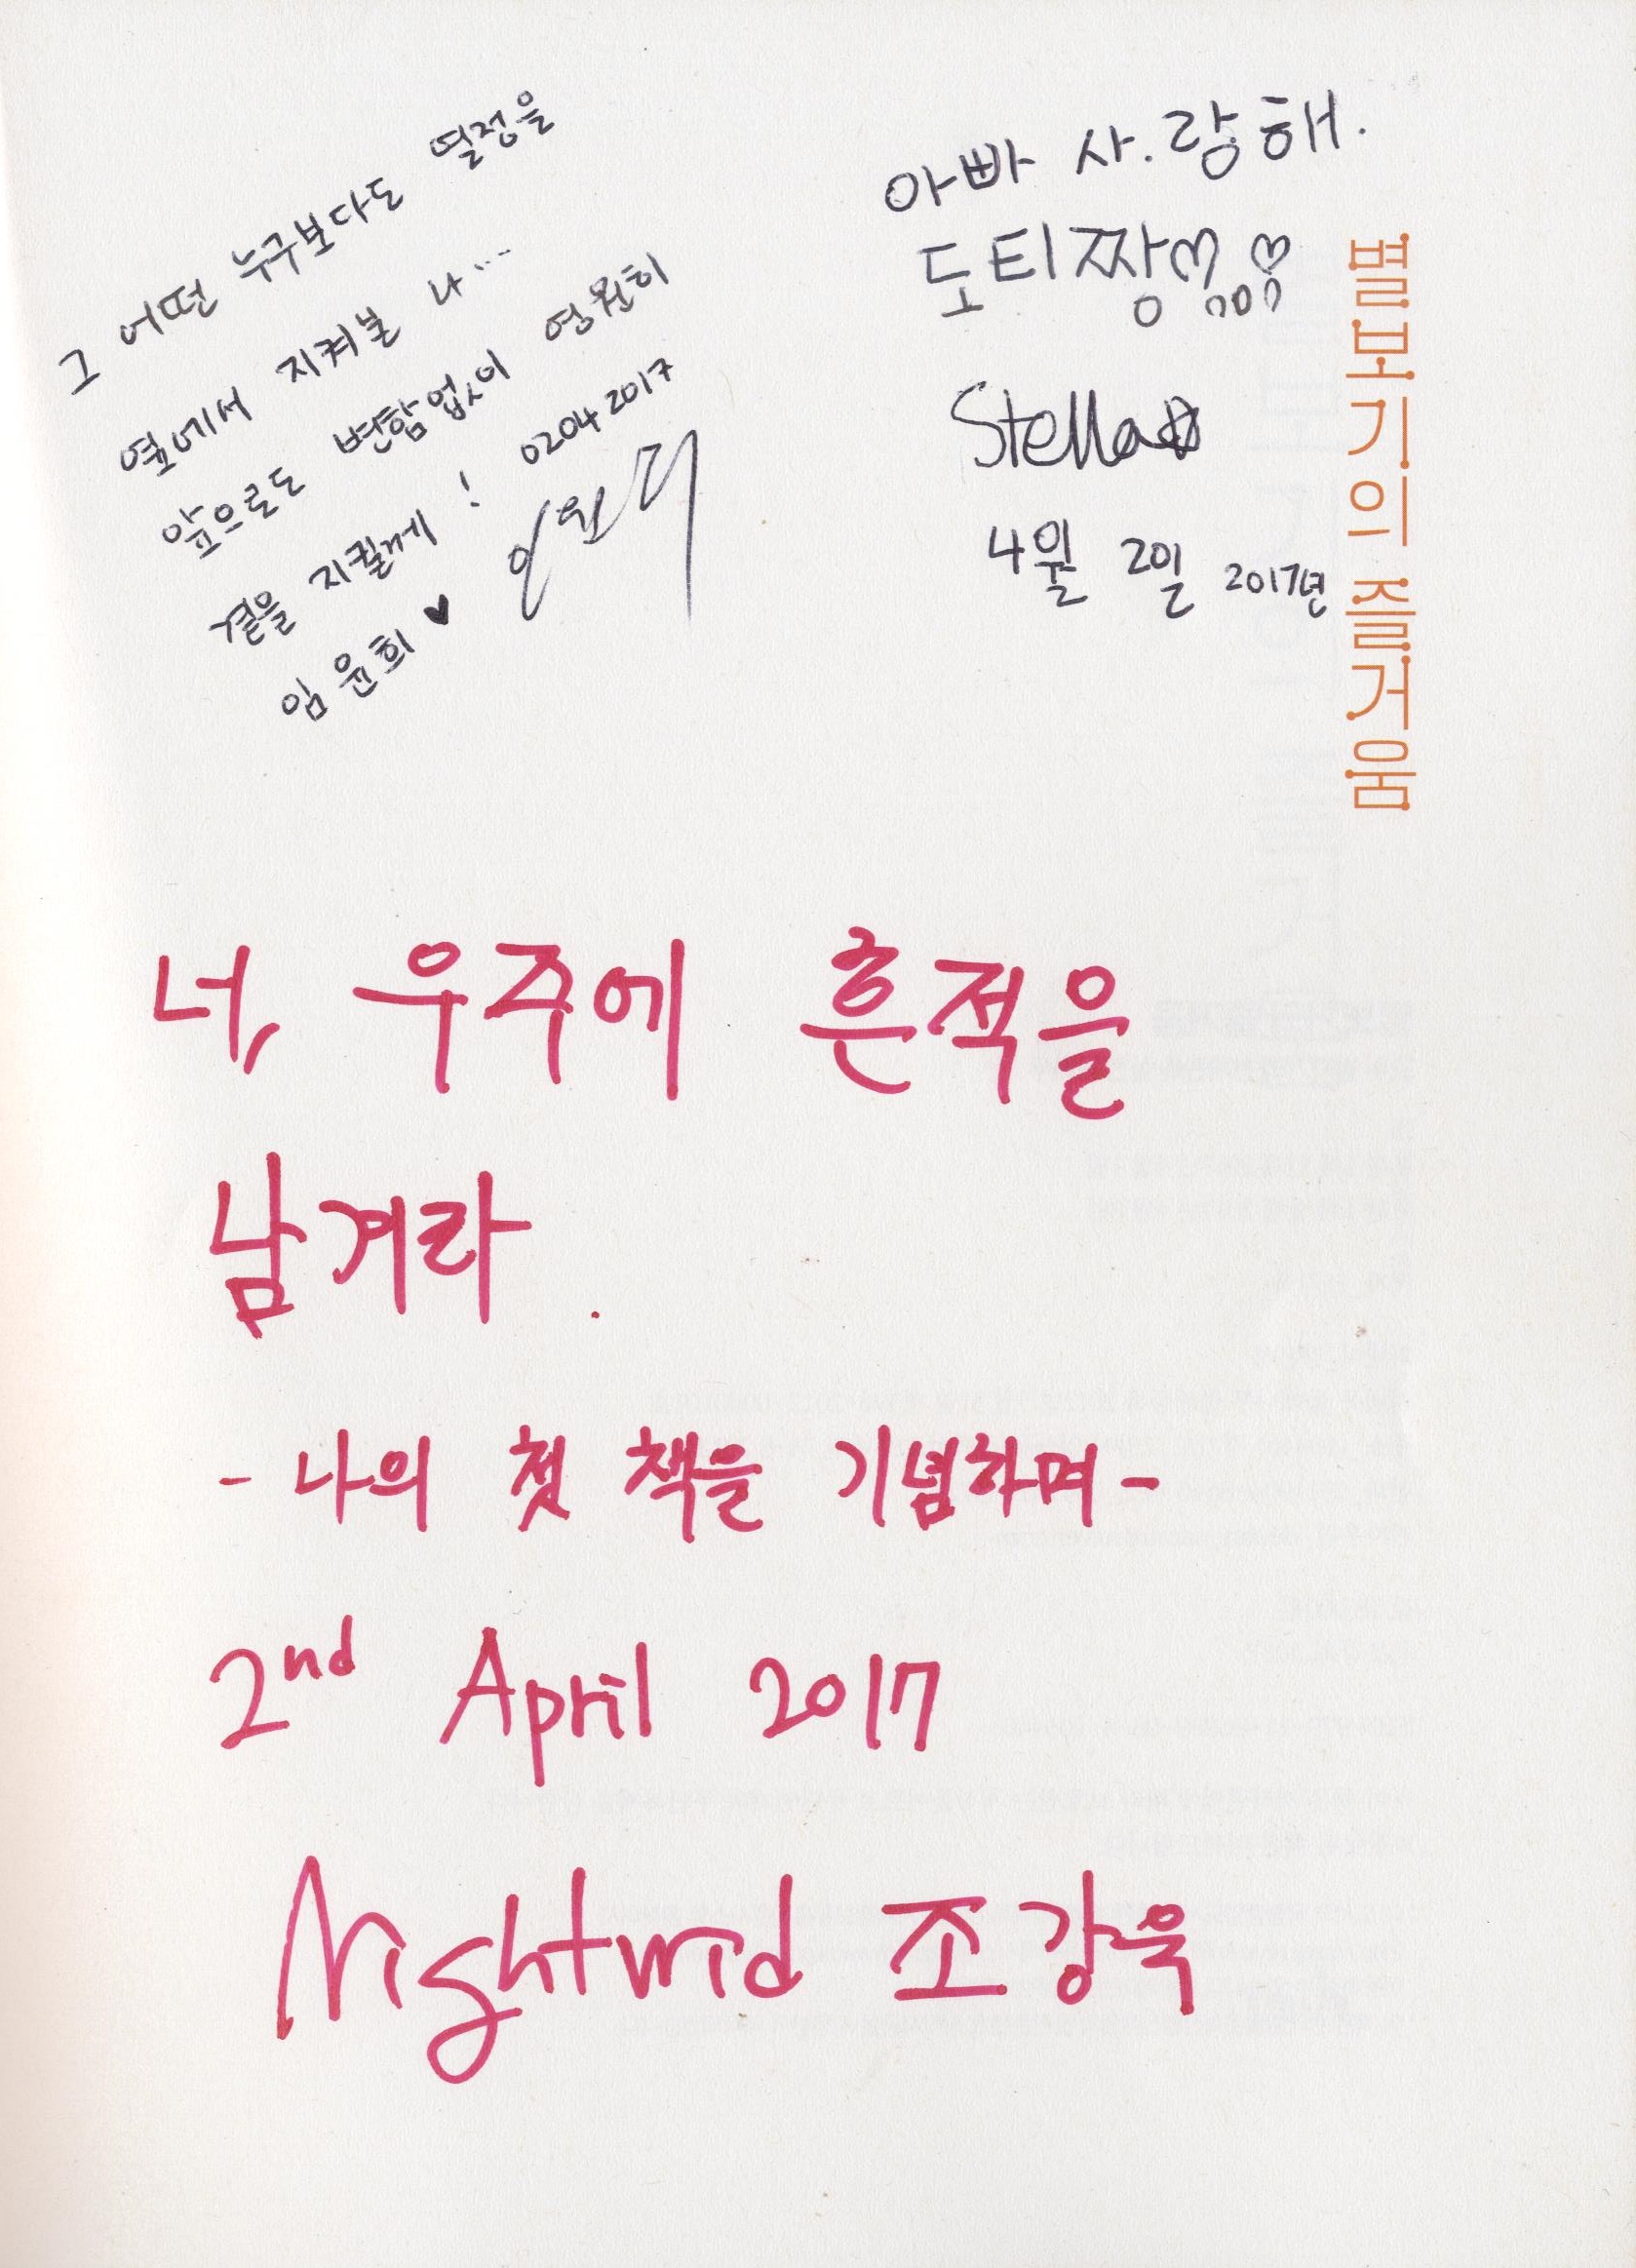 그 어떤 누구보다도 열정을
옆에서 지켜본 나...
앞으로도 변함없이 영원히
곁을 지킬께! 02042017
임윤희♥
아빠 사.랑해.
도티짱
Stella☆
4월 2일 2017년
별보기의 즐거움
너, 우주에 흔적을
남겨라.
- 나의 첫 책을 기념하며 -
2nd April 2017
Nightwid 조강욱